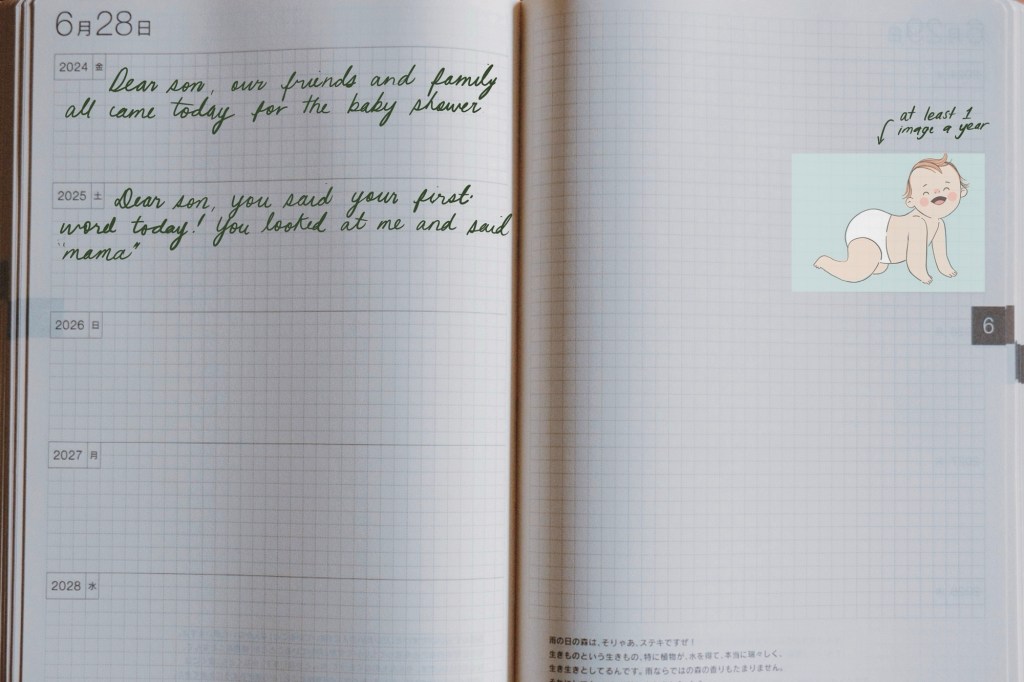 6月28日
2024 金
Dear son, our friends and family
all came today for the baby shower
2025 土
Dear son, you said your first
word today! You looked at me and said
"mama"
2026 日
2027 月
2028 水
at least 1
image a year
6
雨の日の森は、そりゃあ、ステキですぜ！
生きものという生きもの、特に植物が、水を得て、本当に瑞々しく、
生き生きとしてるんです。雨ならではの森の香りもたまりません。